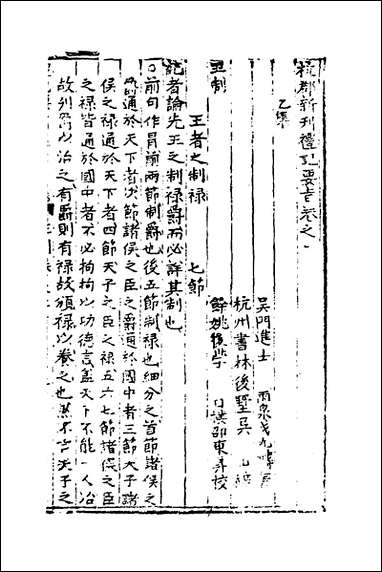 杭郡新刊禮記要旨卷之一
乙集
吳門進士
杭州書林後墅吳
餘姚後學 邵東昇校
王制
王者之制祿 七節
記者論先王之制祿爵而必詳其制也
前句作冒前兩節制爵也後五節制祿也細分之首節諸侯之
爵通於天下者次節諸侯之臣之爵通於國中者三節天子諸
侯之祿通於天下者四節天子之臣之祿五六七節諸侯之臣
之祿皆通於國中者不必拘拘以功德言蓋天下不能一人治
故列爵以治之有爵則有祿故頒祿以養之也 天子之